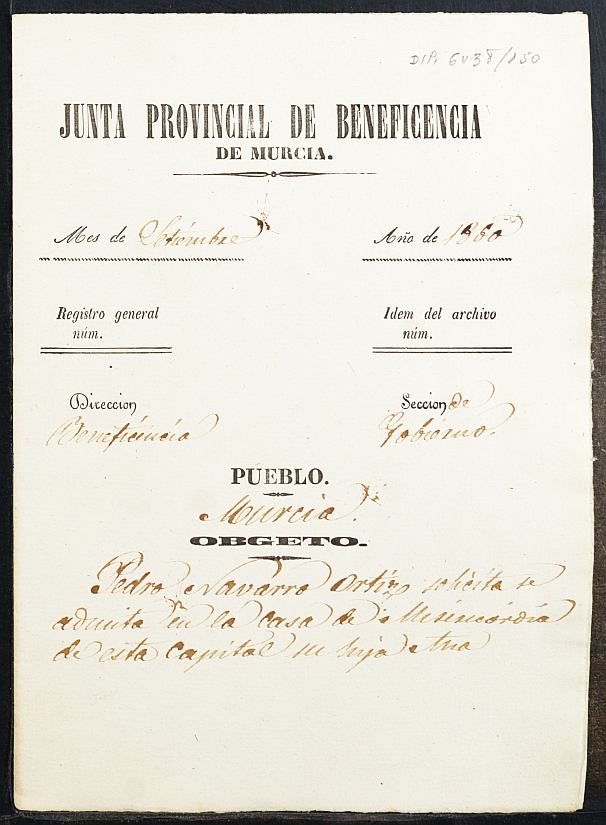 DIP. 6438/150
JUNTA PROVINCIAL DE BENEFICENCIA
DE MURCIA.
Mes de Setiembre Año de 1860
Registro general Idem del archivo
núm. núm.
Direccion Seccion de
Beneficiencia Gobierno.
PUEBLO.
Murcia.
OBGETO.
Pedro Navarro Ortiz solicita se
admita en la casa de Misericordia
de esta Capital su hija Ana